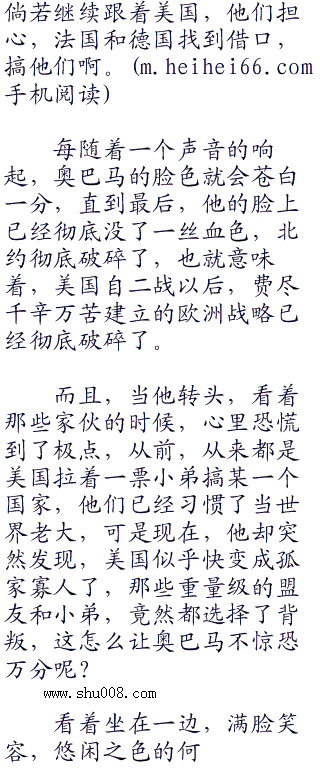 倘若继续跟着美国，他们担
心，法国和德国找到借口，
搞他们啊。(m.heihei66.com
手机阅读)
每随着一个声音的响
起，奥巴马的脸色就会苍白
一分，直到最后，他的脸上
已经彻底没了一丝血色，北
约彻底破碎了，也就意味
着，美国自二战以后，费尽
千辛万苦建立的欧洲战略已
经彻底破碎了。
而且，当他转头，看着
那些家伙的时候，心里恐慌
到了极点，从前，从来都是
美国拉着一票小弟搞某一个
国家，他们已经习惯了当世
界老大，可是现在，他却突
然发现，美国似乎快变成孤
家寡人了，那些重量级的盟
友和小弟，竟然都选择了背
叛，这怎么让奥巴马不惊恐
万分呢？
www.shu008.com
看着坐在一边，满脸笑
容，悠闲之色的何